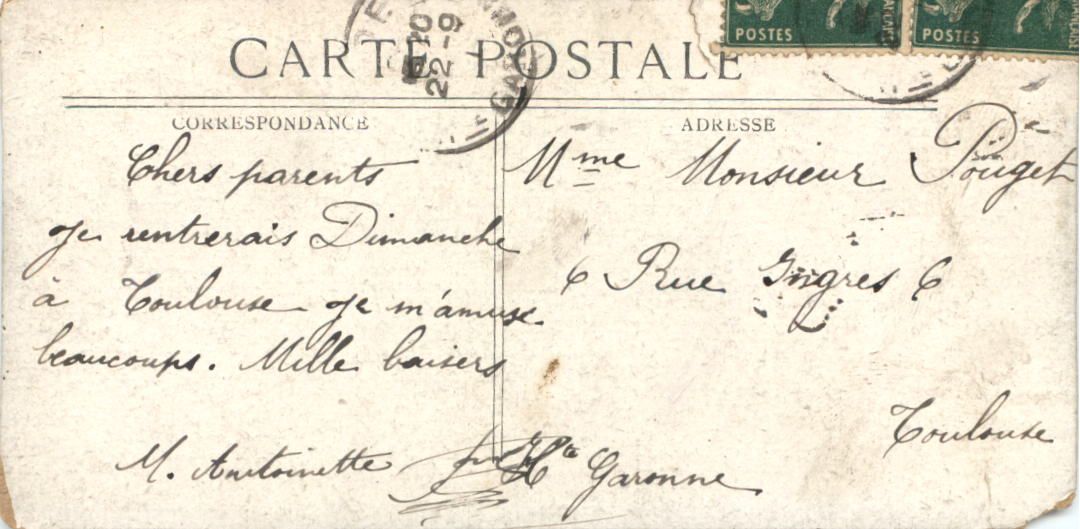 CARTE POSTALE
CORRESPONDANCE
Chers parents
je rentrerais Dimanche
à Toulouse je m'amuse
beaucoups. Mille baisers
M. Antoinette
ADRESSE
Mme Monsieur Pouget
6 Rue Ingres 6
Toulouse
Hte Garonne
POSTES
POSTES
22-9